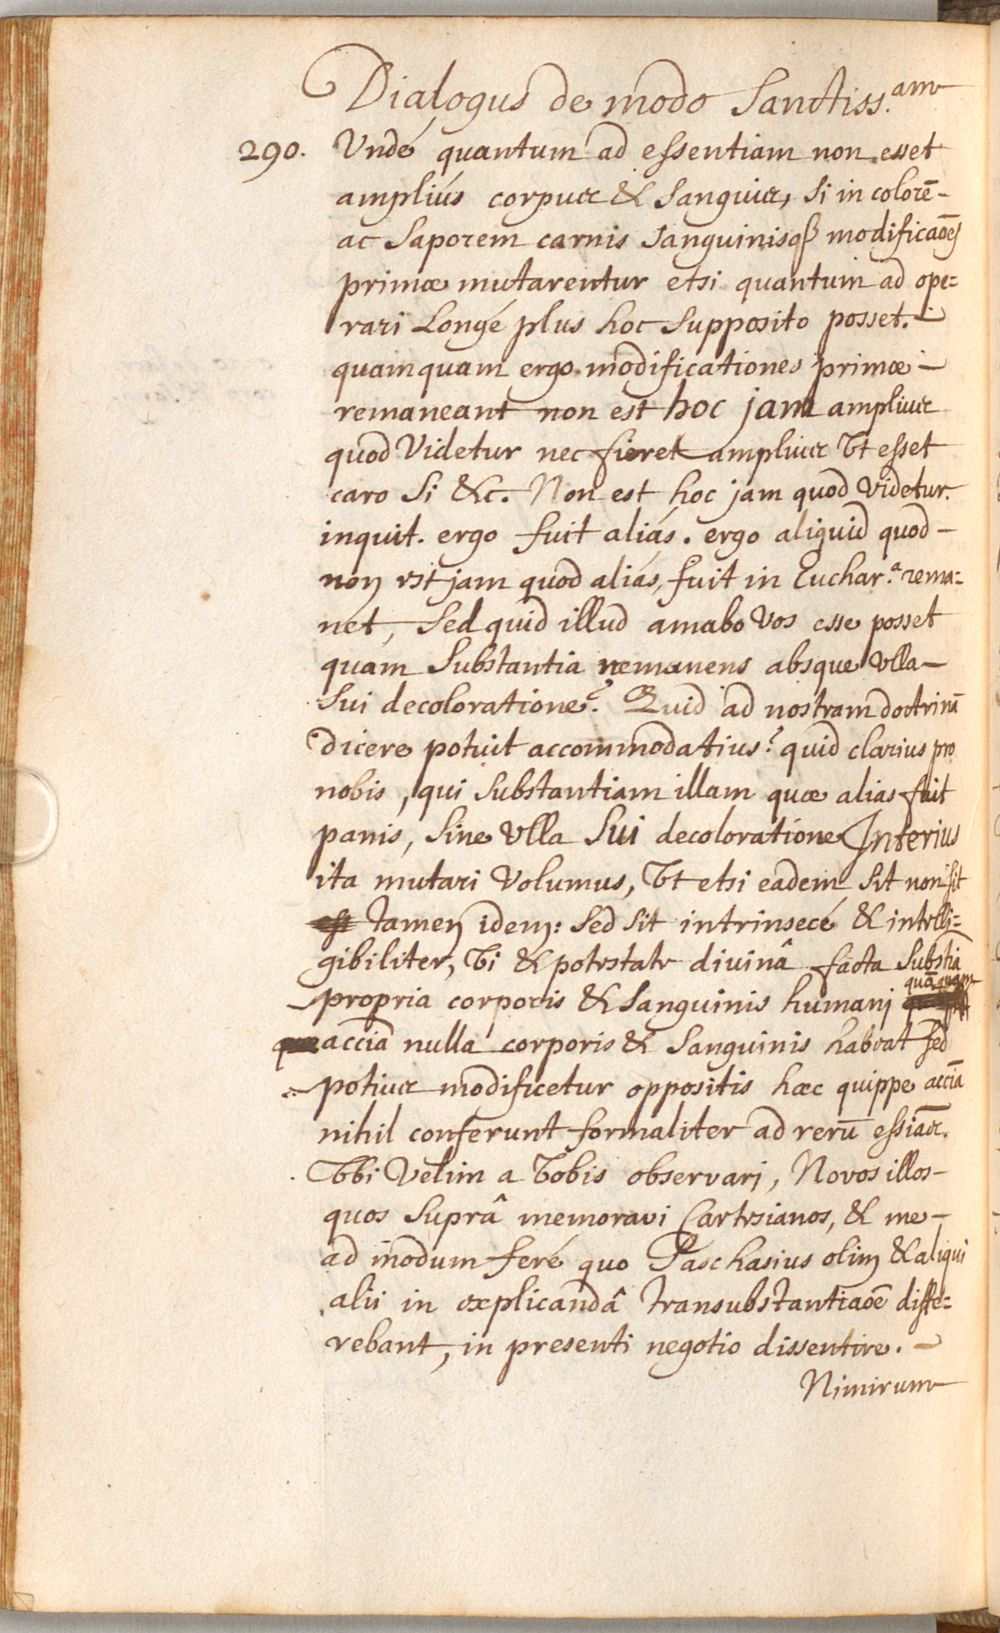 Dialogus de modo Sanctiss.am
290. Undé quantum ad essentiam non esset
ampliús corpus & Sanguis, Si in colorē-
ac Saporem carnis Sanguinisq3 modificaōes
primæ mutarentur etsi quantum ad ope=
rari Longé plus hoc Supposito posset. -
quamquam ergo modificationes primæ -
remaneant non est hoc jam amplius
quod Videtur nec fieret amplius Vt esset
caro Si &c. Non est hoc jam quod Videtur.
inquit. ergo fuit aliás. ergo aliquid quod -
non est jam quod aliás, fuit in Euchar.a rema=
net, Sed quid illud amabo Vos esse posset
quám Substantia remanens absque Ulla -
Sui decoloratione? Quid ad nostram doctrinā
dicere potuit accommodatius? quid clarius pro
nobis, qui Substantiam illam quæ alias fuit
panis, Sine Ulla Sui decoloratione Interius
ita mutari Volumus, Vt etsi eadem Sit non sit
tamen idem: Sed Sit intrinsecé & intelli=
gibiliter, Vi & potestate divinâ facta Substīa
propria corporis & Sanguinis humani quāquam
accīa nulla corporis & Sanguinis habeat sed
potius modificetur oppositis hæc quippe accīa
nihil conferunt formaliter ad rerū essīas.
Vbi Velim a Vobis observari, Novos illos -
quos Suprâ memoravi Cartesianos, & me -
ad modum feré quo Paschasius olim & aliqui
alii in explicandâ transubstantiaōe diffe=
rebant, in presenti negotio dissentire. -
Nimirum